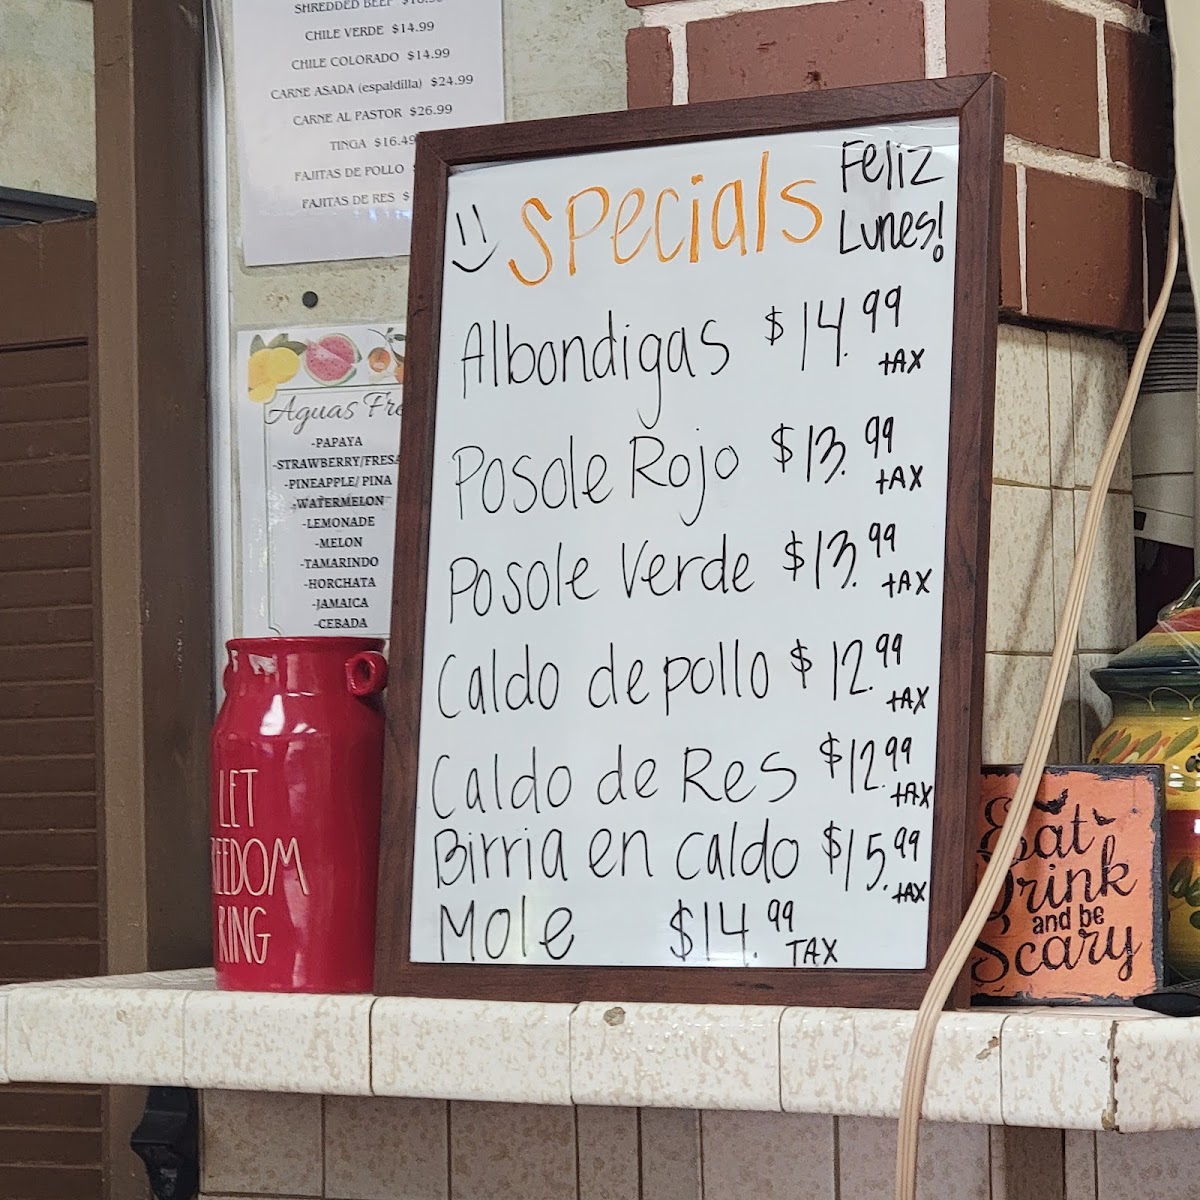 SHREDDED BEEF
CHILE VERDE $14.99
CHILE COLORADO $14.99
CARNE ASADA (espaldilla) $24.99
CARNE AL PASTOR $26.99
TINGA $16.49
FAJITAS DE POLLO
FAJITAS DE RES $
Aguas Fre
-PAPAYA
-STRAWBERRY/FRESA
-PINEAPPLE/ PINA
-WATERMELON
-LEMONADE
-MELON
-TAMARINDO
-HORCHATA
-JAMAICA
-CEBADA
Specials
Feliz
Lunes!
Albondigas $14.99 tAX
Posole Rojo $13.99 tAX
Posole Verde $13.99 tAX
Caldo de pollo $12.99 tAX
Caldo de Res $12.99 tAX
Birria en caldo $15.99 tAX
Mole $14.99 TAX
LET
REEDOM
RING
Eat
Drink
and be
Scary